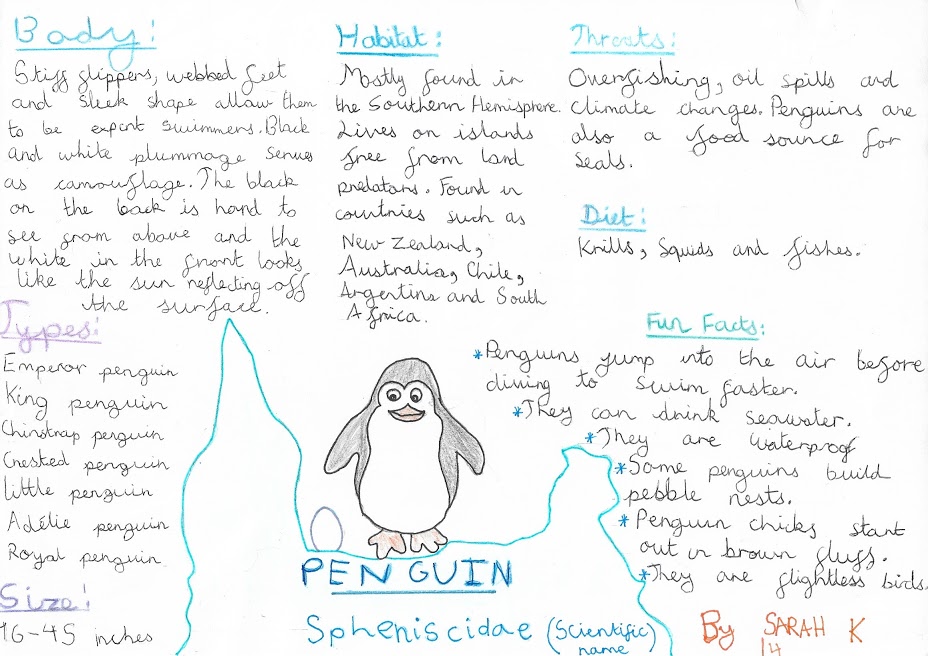 Body:
Stiff flippers, webbed feet
and sleek shape allow them
to be expert swimmers. Black
and white plummage serves
as camouflage. The black
on the back is hard to
see from above and the
white in the front looks
like the sun reflecting off
the surface.
Types:
Emperor penguin
King penguin
Chinstrap penguin
Crested penguin
Little penguin
Adélie penguin
Royal penguin
Size:
16-45 inches
Habitat:
Mostly found in
the Southern Hemisphere.
Lives on islands
free from land
predators. Found in
countries such as
New Zealand,
Australia, Chile,
Argentina and South
Africa.
Threats:
Overfishing, oil spills and
climate changes. Penguins are
also a food source for
seals.
Diet:
Krills, squids and fishes.
Fun Facts:
*Penguins jump into the air before
diving to swim faster.
*They can drink seawater.
*They are waterproof
*Some penguins build
pebble nests.
*Penguin chicks start
out in brown fluff.
*They are flightless birds.
PENGUIN
Spheniscidae (scientific)
name
By SARAH K
14